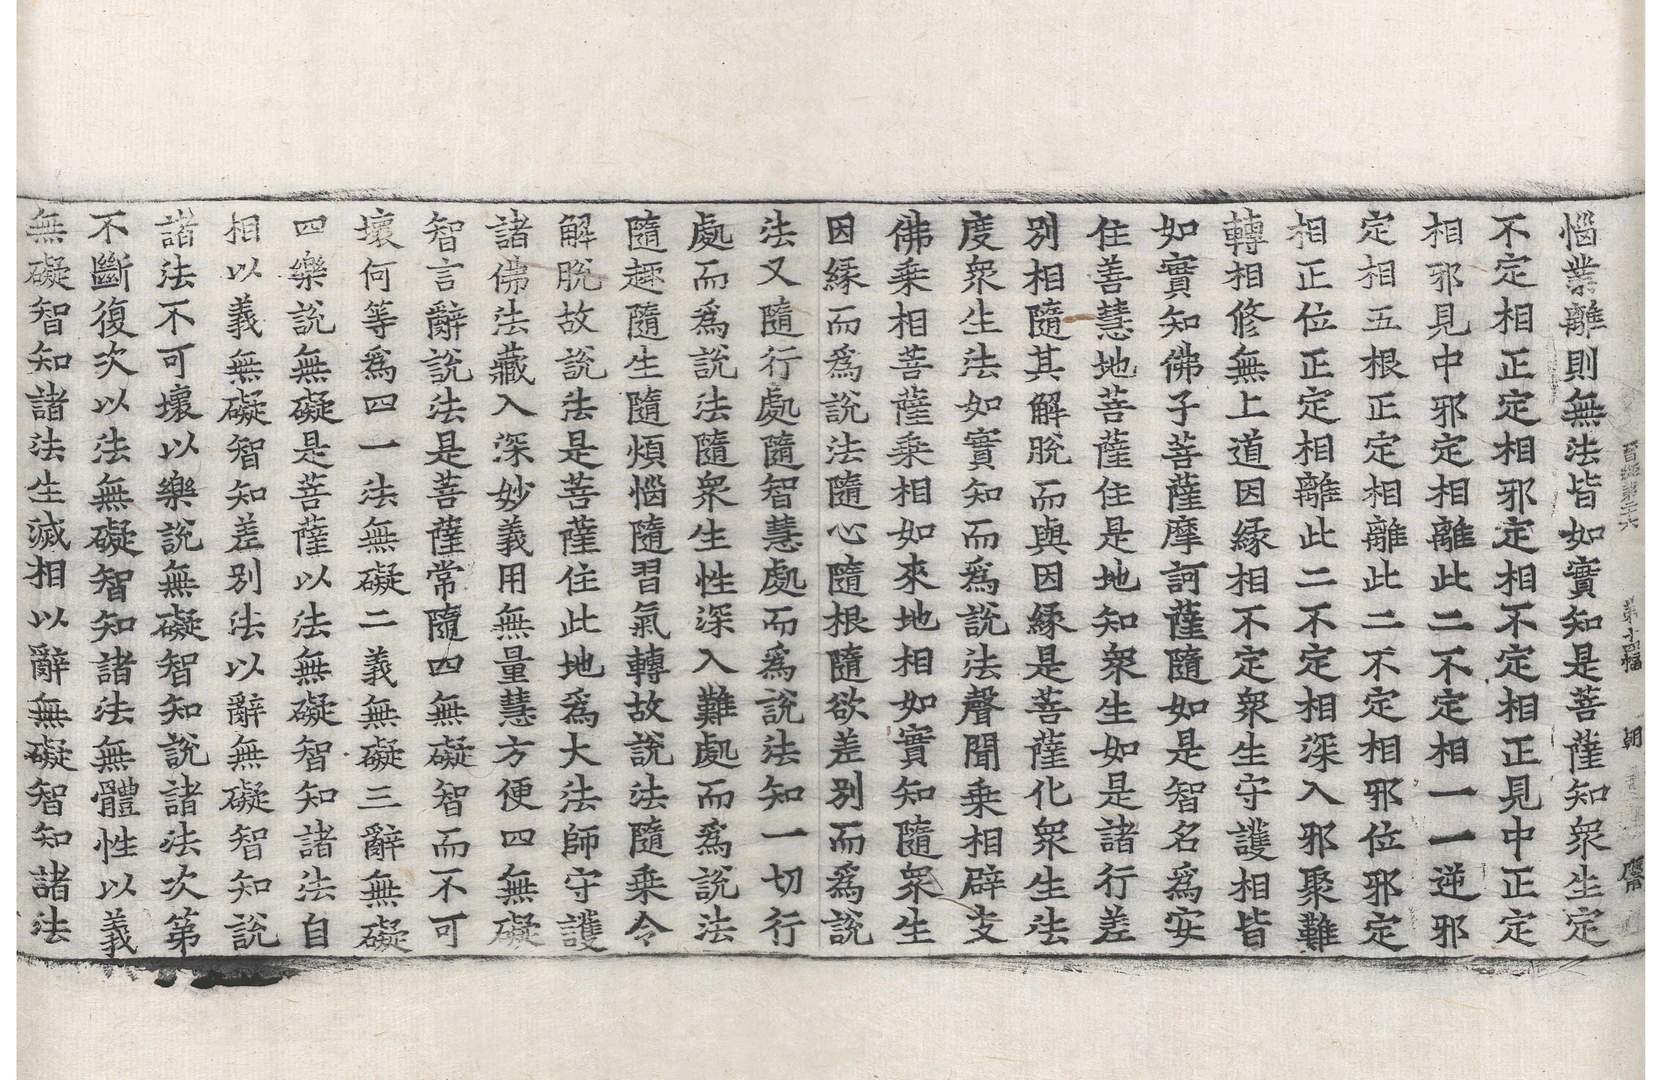 惱業離則無法皆如實知是菩薩知衆生定
不定相正定相邪定相不定相正見中正定
相邪見中邪定相離此二不定相一一逆邪
定相五根正定相離此二不定相邪位邪定
相正位正定相離此二不定相深入邪聚難
轉相修無上道因緣相不定衆生守護相皆
如實知佛子菩薩摩訶薩隨如是智名爲安
住善慧地菩薩住是地知衆生如是諸行差
別相隨其解脫而與因緣是菩薩化衆生法
度衆生法如實知而爲說法聲聞乘相辟支
佛乘相菩薩乘相如來地相如實知隨衆生
因緣而爲說法隨心隨根隨欲差別而爲說
法又隨行處隨智慧處而爲說法知一切行
處而爲說法隨衆生性深入難處而爲說法
隨趣隨生隨煩惱隨習氣轉故說法隨乘令
解脫故說法是菩薩住此地爲大法師守護
諸佛法藏入深妙義用無量慧方便四無礙
智言辭說法是菩薩常隨四無礙智而不可
壞何等爲四一法無礙二義無礙三辭無礙
四樂說無礙是菩薩以法無礙智知諸法自
相以義無礙智知差別法以辭無礙智知說
諸法不可壞以樂說無礙智知說諸法次第
不斷復次以法無礙智知諸法無體性以義
無礙智知諸法生滅相以辭無礙智知諸法